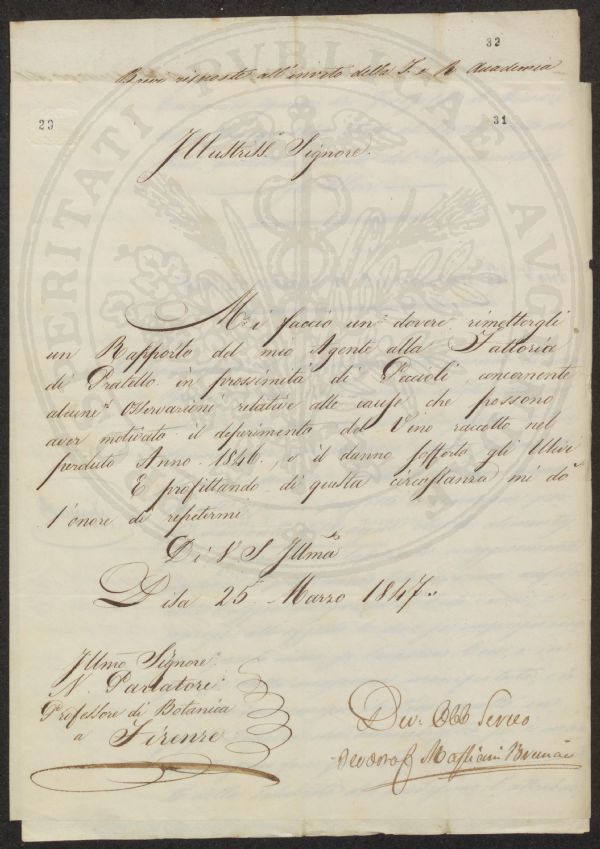 32
Brevi risposte all'invito della I. e R. Accademia
23
31
Illustriss. Signore.
Mi faccio un dovere rimettergli
un Rapporto del mio Agente alla Fattoria
di Pratello in prossimità di Peccioli, concernente
alcune Osservazioni relative alle cause che possono
aver motivato il deperimento del Vino raccolto nel
perduto Anno 1846, e il danno sofferto gli Ulivi
E profittando di questa circostanza mi do
l'onore di ripetermi
Di V S Illma
Pisa 25 Marzo 1847.
Illmo Signore
N. Parlatore
Professore di Botanica
a Firenze
Dev: Obb Servo
VERITATI PUBLICAE AUG